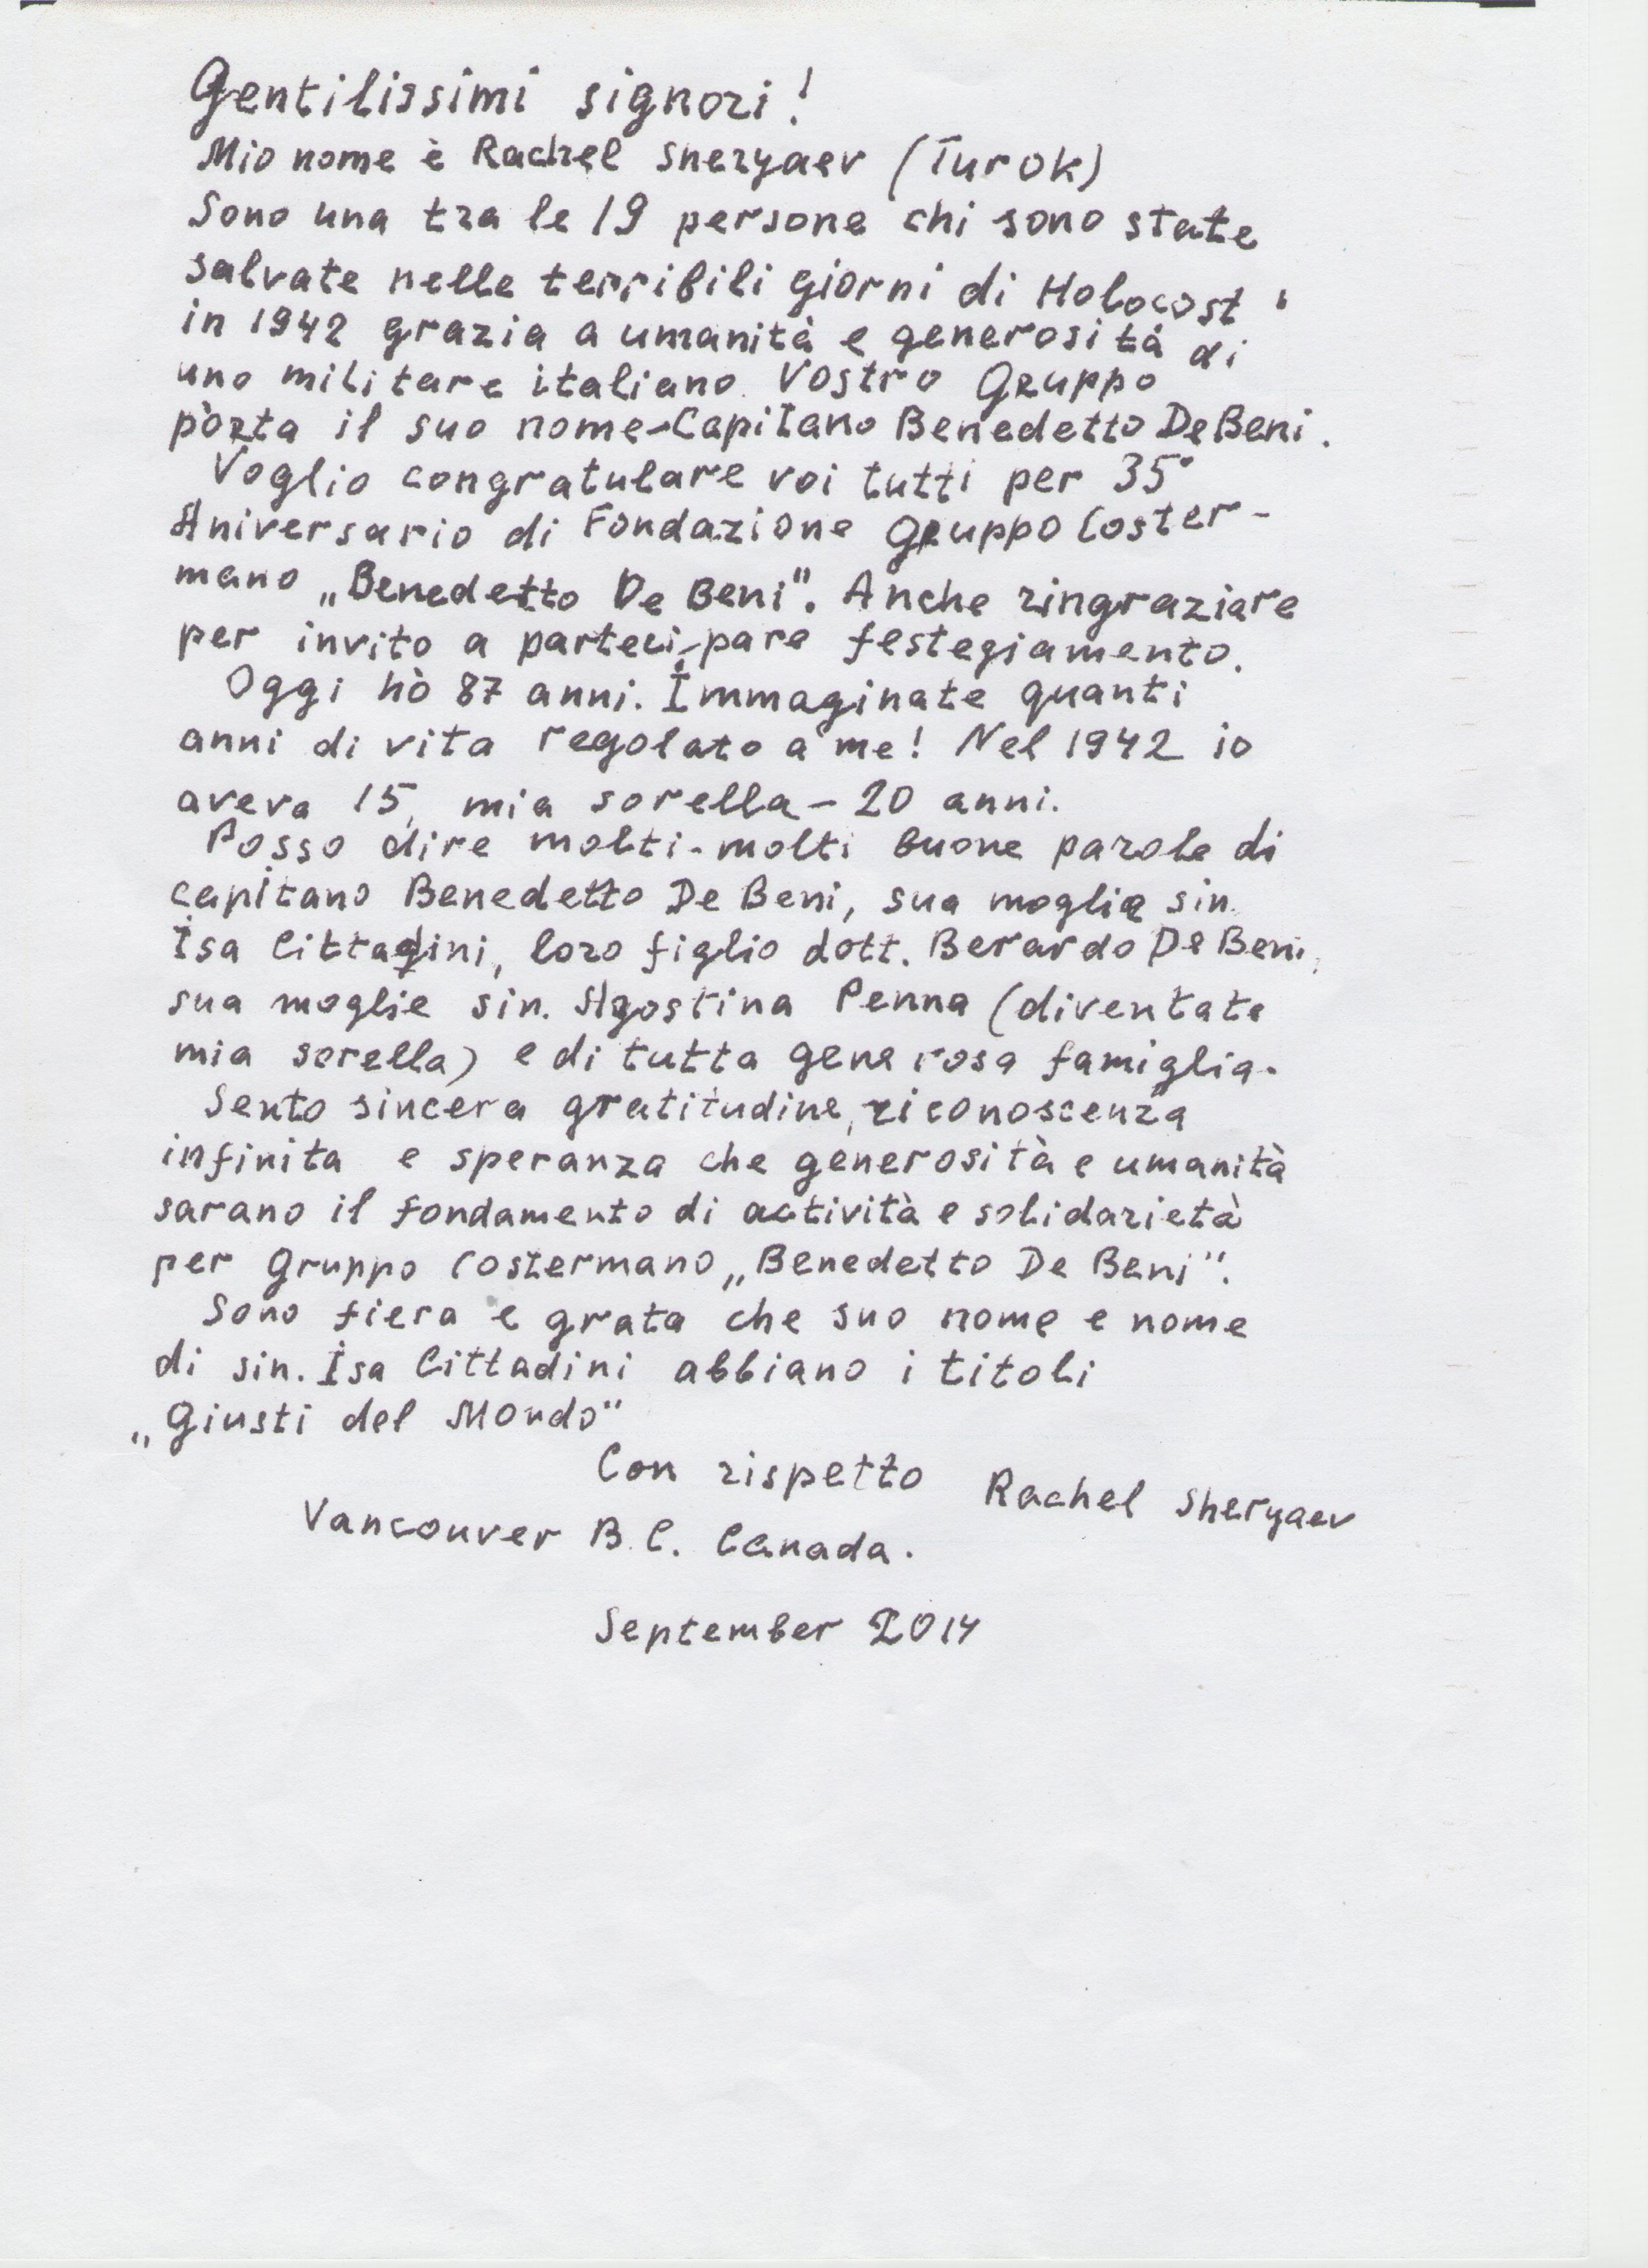 Gentilissimi signori!
Mio nome è Rachel Sheryaev (Turok)
Sono una tra le 19 persone chi sono state
salvate nelle terribili giorni di Holocost
in 1942 grazia a umanità e generosità di
uno militare italiano. Vostro Gruppo
porta il suo nome-Capitano Benedetto De Beni.
Voglio congratulare voi tutti per 35°
Aniversario di Fondazione Gruppo Coster-
mano „Benedetto De Beni". Anche ringraziare
per invito a partecipare festegiamento.
Oggi hò 87 anni. Immaginate quanti
anni di vita regolato a me! Nel 1942 io
aveva 15, mia sorella - 20 anni.
Posso dire molti-molti buone parole di
capitano Benedetto De Beni, sua moglie sin.
Isa Cittadini, loro figlio dott. Berardo De Beni,
sua moglie sin. Agostina Penna (diventata
mia sorella) e di tutta generosa famiglia.
Sento sincera gratitudine, riconoscenza
infinita e speranza che generosità e umanità
sarano il fondamento di activität e solidarietà
per Gruppo Costermano „Benedetto De Beni".
Sono fiera e grata che suo nome e nome
di sin. Isa Cittadini abbiano i titoli
„Giusti del Mondo"
Con rispetto Rachel Sheryaev
Vancouver B.C. Canada.
September 2014